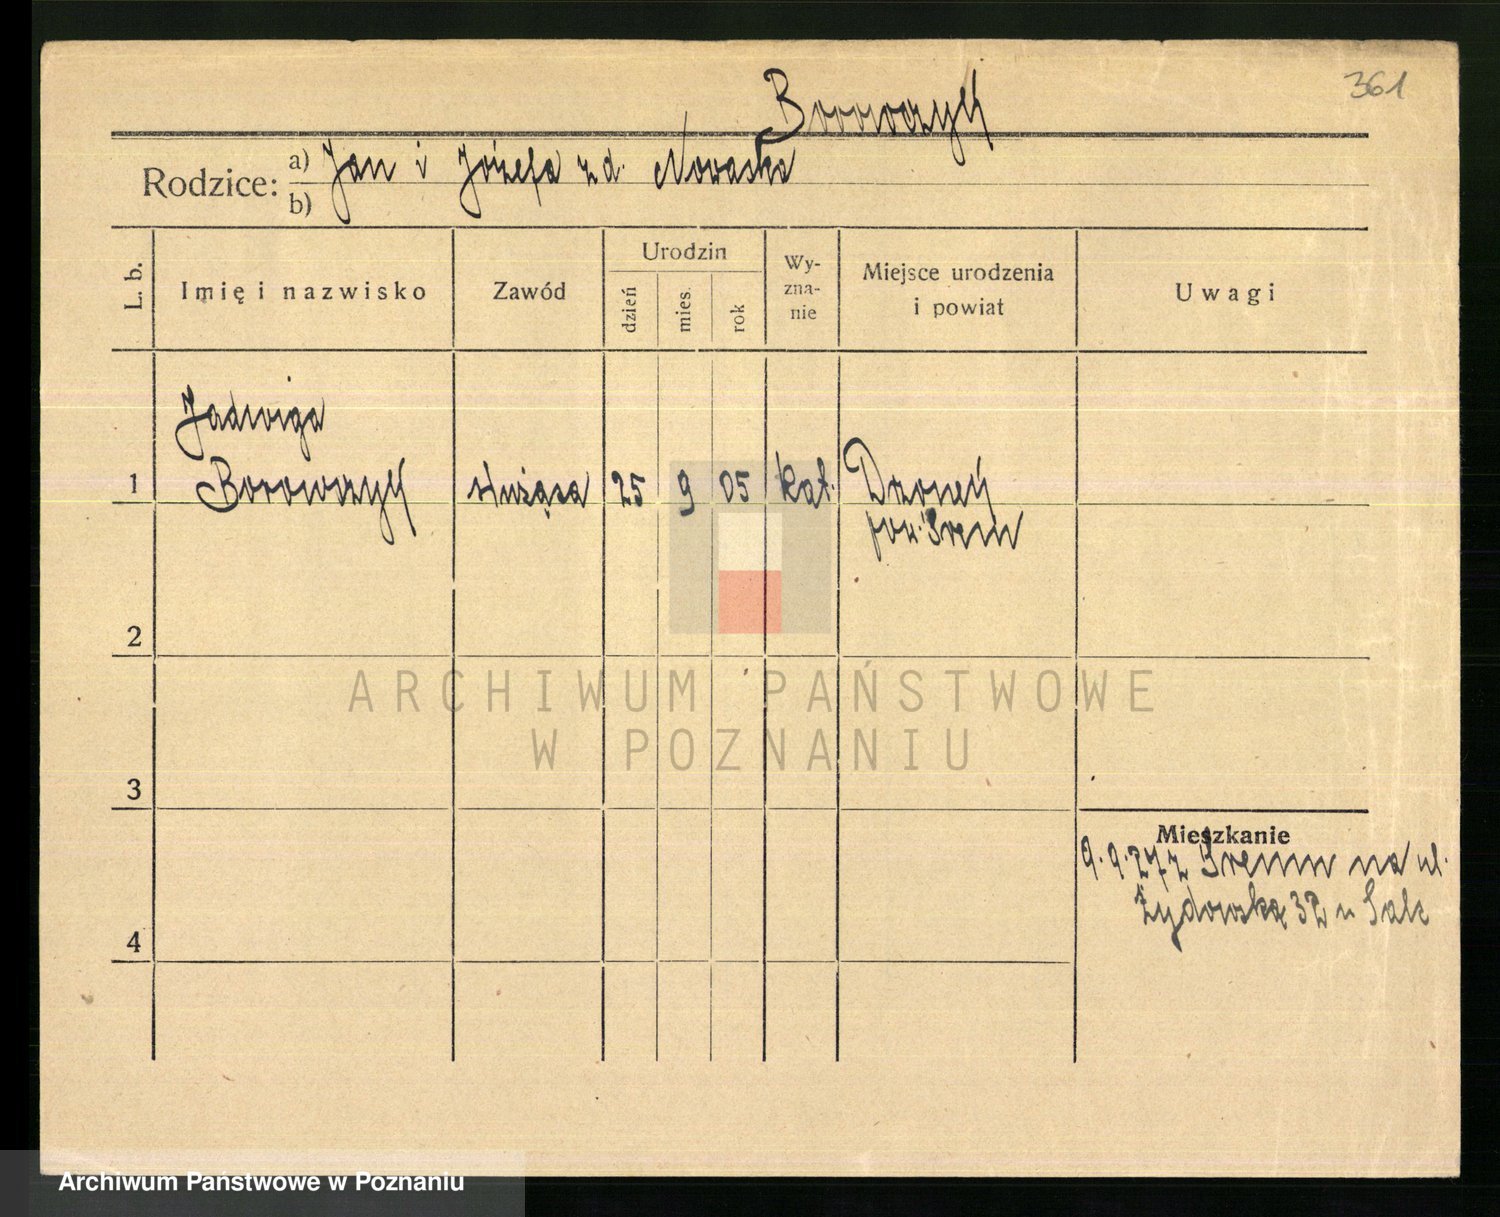 361
Borowczyk
Rodzice: a) Jan i Józefa z d. Nowacka
b)
L. b. Imię i nazwisko Zawód Urodzin dzień mies. rok Wy-zna-nie Miejsce urodzenia i powiat Uwagi
Jadwiga
1 Borowczyk służąca 25 9 05 kat.
pow. Śrem
2
ARCHIWUM PAŃSTWOWE
W POZNANIU
3
Mieszkanie
9.9.27 z Śremu na ul.
Żydowską 32 u
4
Archiwum Państwowe w Poznaniu